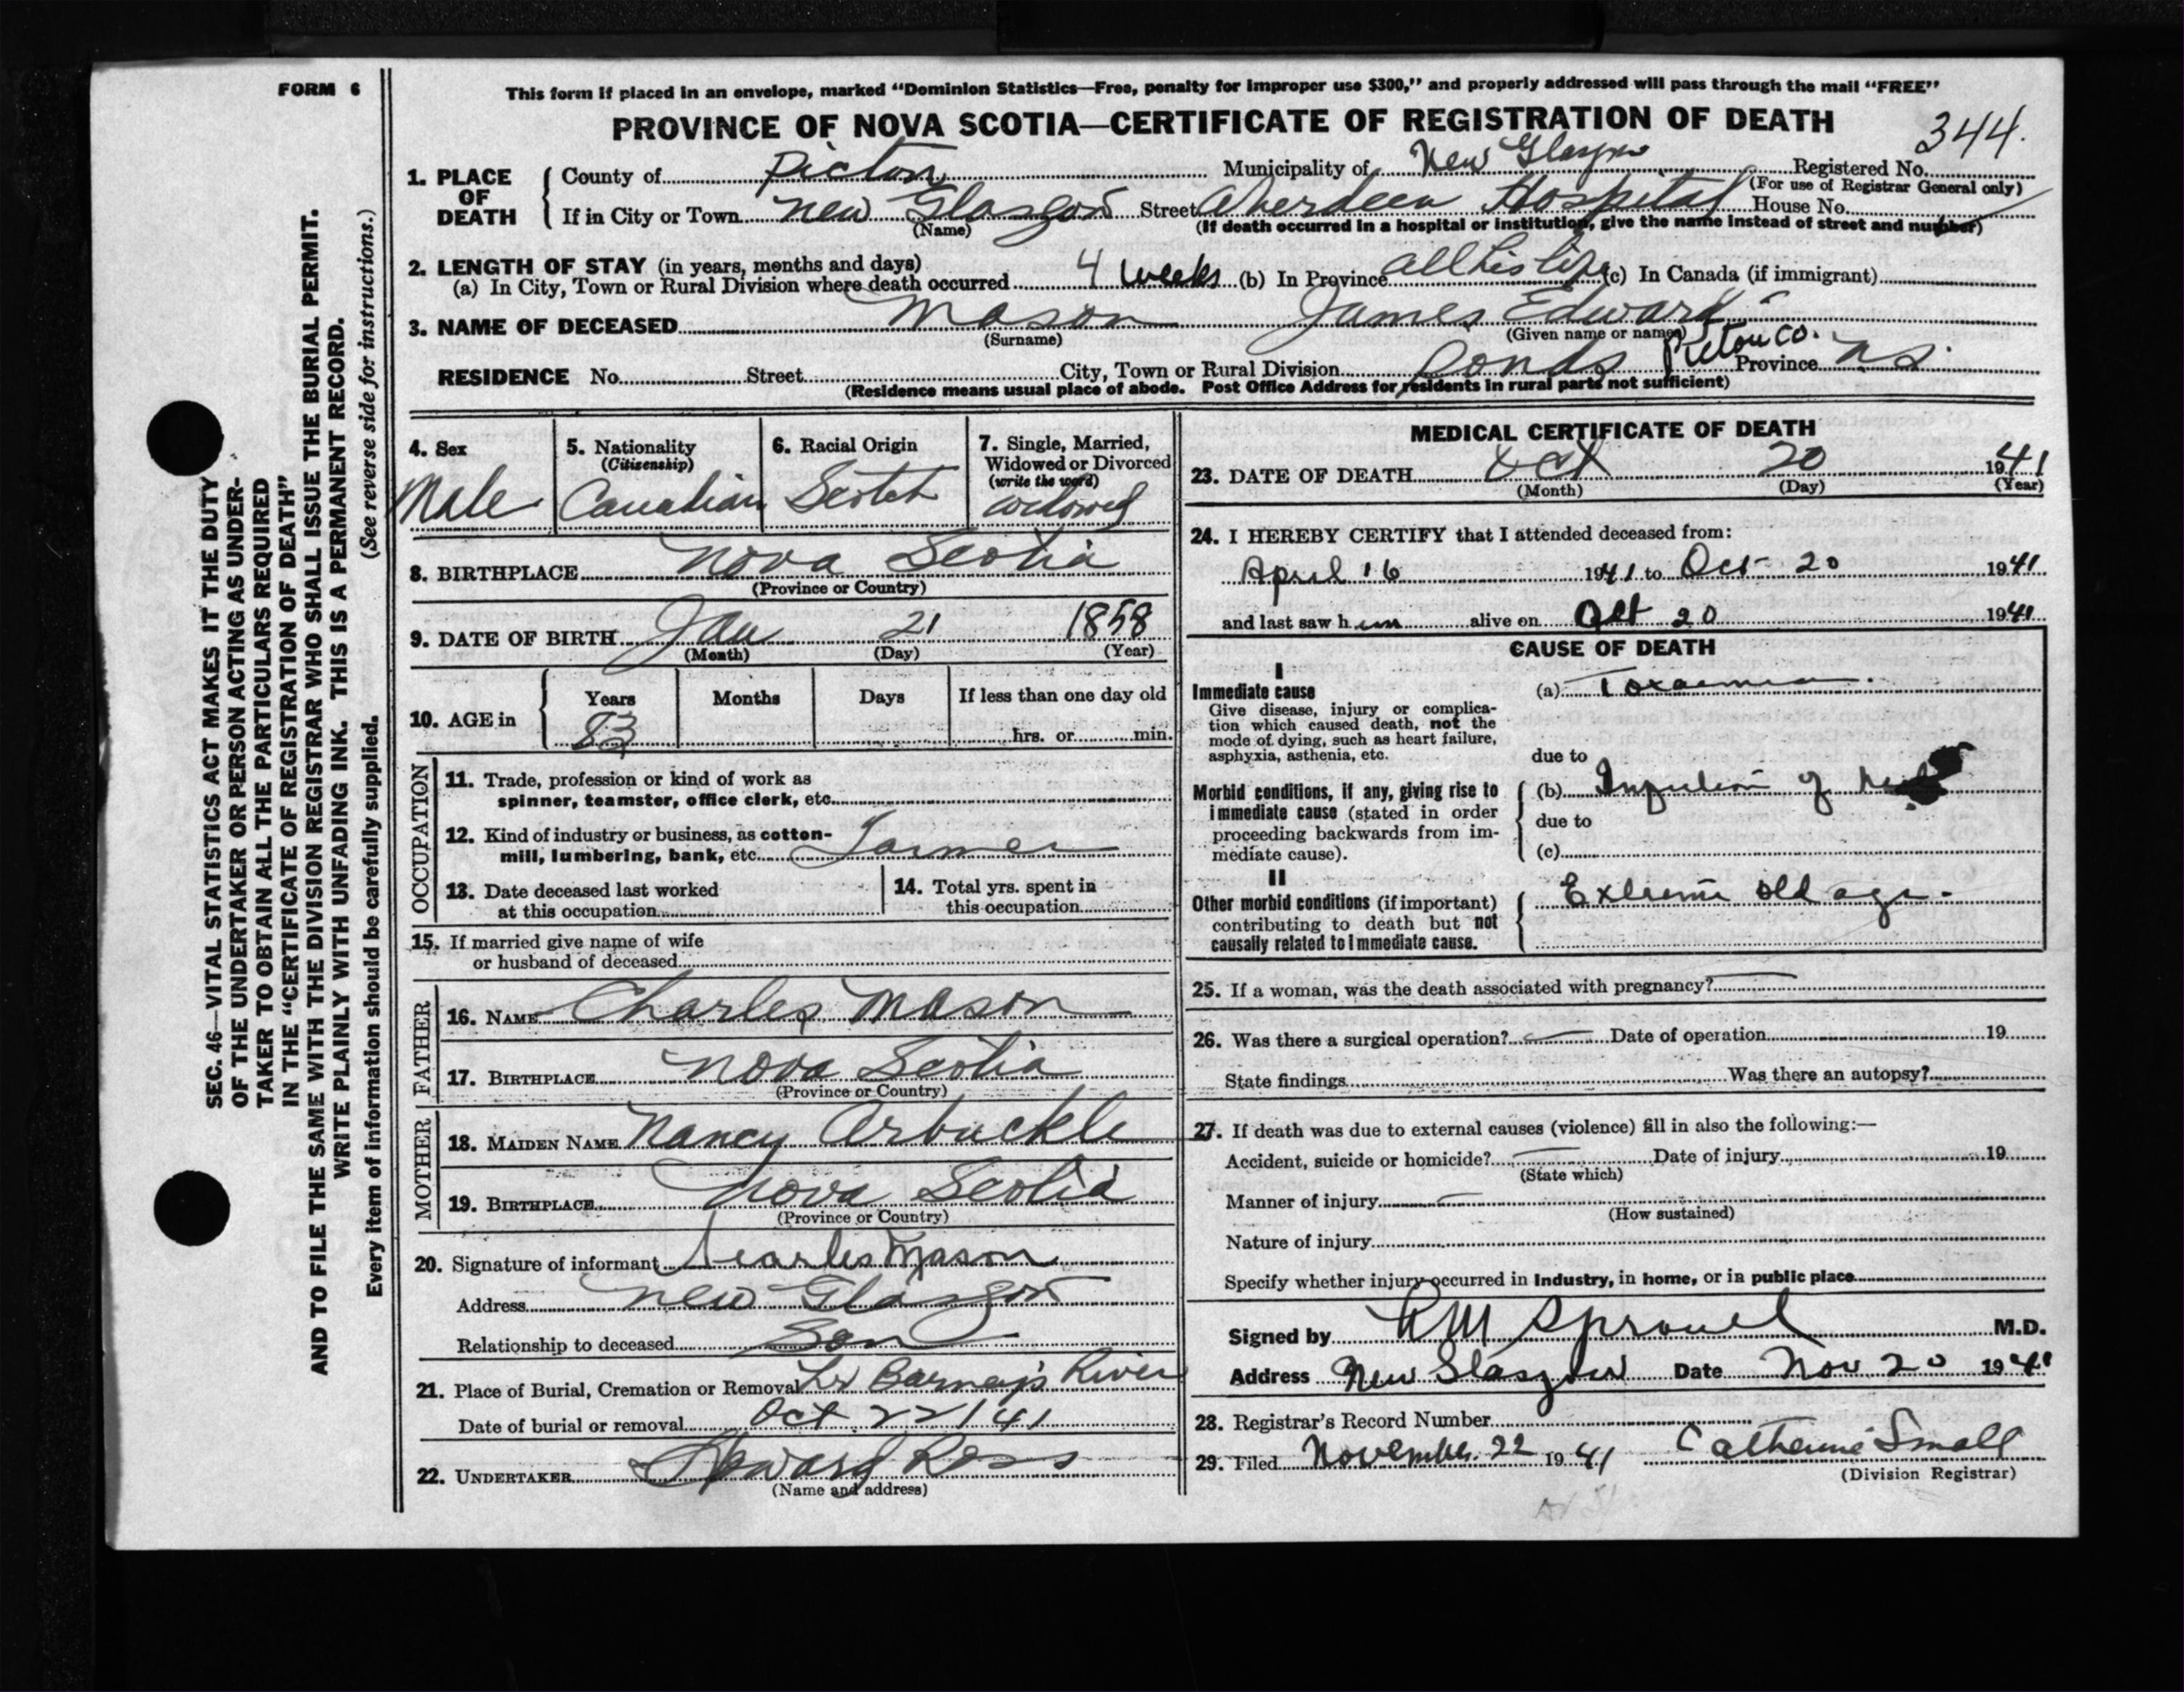 FORM 6
This form if placed in an envelope, marked “Dominion Statistics—Free, penalty for improper use $300,” and properly addressed will pass through the mail “FREE”
PROVINCE OF NOVA SCOTIA—CERTIFICATE OF REGISTRATION OF DEATH
344.
1. PLACE OF DEATH
County of Pictou Municipality of New Glasgow Registered No.
(For use of Registrar General only)
If in City or Town New Glasgow Street Aberdeen Hospital House No.
(Name) (If death occurred in a hospital or institution, give the name instead of street and number)
2. LENGTH OF STAY (in years, months and days)
(a) In City, Town or Rural Division where death occurred 4 weeks (b) In Province all his life (c) In Canada (if immigrant)
3. NAME OF DECEASED Mason James Edward
(Surname) (Given name or names)
RESIDENCE No. Street City, Town or Rural Division Ponds Pictou Co. Province N.S.
(Residence means usual place of abode. Post Office Address for residents in rural parts not sufficient)
4. Sex
Male
5. Nationality
(Citizenship)
Canadian
6. Racial Origin
Scotch
7. Single, Married,
Widowed or Divorced
(write the word)
widowed
8. BIRTHPLACE Nova Scotia
(Province or Country)
9. DATE OF BIRTH Jan 21 1858
(Month) (Day) (Year)
10. AGE in
Years Months Days If less than one day old
83 hrs. or min.
OCCUPATION
11. Trade, profession or kind of work as
spinner, teamster, office clerk, etc.
12. Kind of industry or business, as cotton-
mill, lumbering, bank, etc. Farmer
13. Date deceased last worked
at this occupation
14. Total yrs. spent in
this occupation
15. If married give name of wife
or husband of deceased
FATHER
16. NAME Charles Mason
17. BIRTHPLACE Nova Scotia
(Province or Country)
MOTHER
18. MAIDEN NAME Nancy Arbuckle
19. BIRTHPLACE Nova Scotia
(Province or Country)
20. Signature of informant Charles Mason
Address New Glasgow
Relationship to deceased Son
21. Place of Burial, Cremation or Removal Lr Barney's River
Date of burial or removal Oct 22/41
22. UNDERTAKER Howard Ross
(Name and address)
MEDICAL CERTIFICATE OF DEATH
23. DATE OF DEATH Oct 20 1941
(Month) (Day) (Year)
24. I HEREBY CERTIFY that I attended deceased from:
April 16 1941 to Oct 20 1941
and last saw him alive on Oct 20 1941
CAUSE OF DEATH
I
Immediate cause
Give disease, injury or complica-
tion which caused death, not the
mode of dying, such as heart failure,
asphyxia, asthenia, etc.
(a) Toxaemia
due to
Morbid conditions, if any, giving rise to
immediate cause (stated in order
proceeding backwards from im-
mediate cause).
(b) of
due to
(c)
II
Other morbid conditions (if important)
contributing to death but not
causally related to immediate cause.
Extreme old age-
25. If a woman, was the death associated with pregnancy?
26. Was there a surgical operation? Date of operation 19
State findings Was there an autopsy?
27. If death was due to external causes (violence) fill in also the following:—
Accident, suicide or homicide? Date of injury 19
(State which)
Manner of injury
(How sustained)
Nature of injury
Specify whether injury occurred in industry, in home, or in public place
Signed by Sprouel M.D.
Address New Glasgow Date Nov 20 1941
28. Registrar's Record Number
29. Filed November 22 1941 Catherine Small
(Division Registrar)
SEC. 46—VITAL STATISTICS ACT MAKES IT THE DUTY
OF THE UNDERTAKER OR PERSON ACTING AS UNDER-
TAKER TO OBTAIN ALL THE PARTICULARS REQUIRED
IN THE “CERTIFICATE OF REGISTRATION OF DEATH”
AND TO FILE THE SAME WITH THE DIVISION REGISTRAR WHO SHALL ISSUE THE BURIAL PERMIT.
WRITE PLAINLY WITH UNFADING INK. THIS IS A PERMANENT RECORD.
(See reverse side for instructions.)
Every item of information should be carefully supplied.